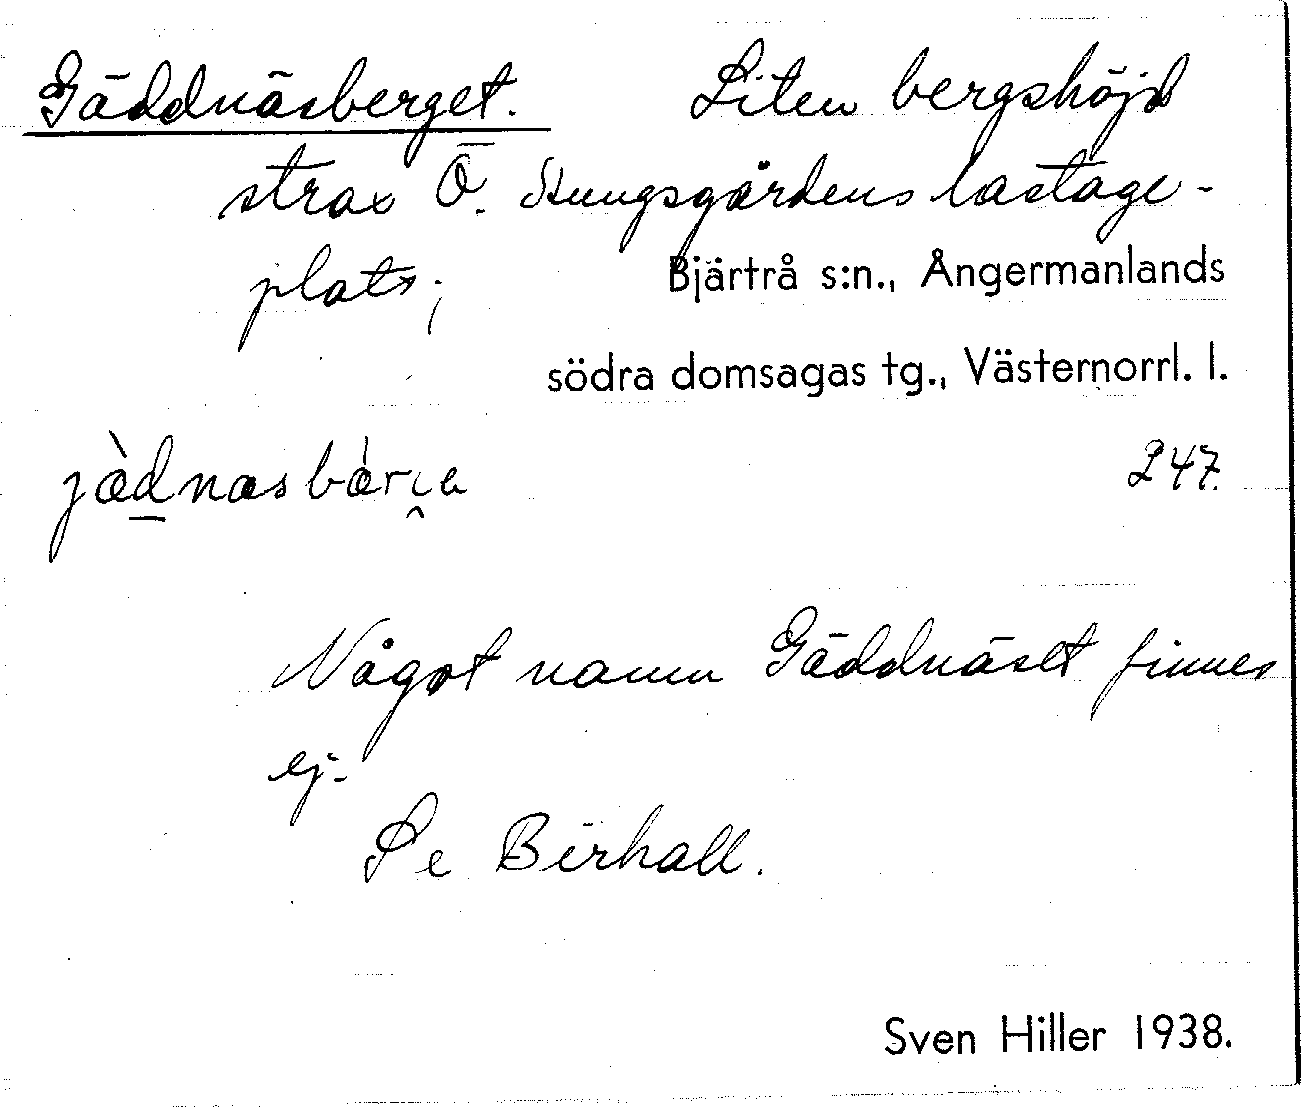 Gäddnäsberget. Liten bergshöjd
strax Ö. Kungsgårdens lastage-
plats; Bjärtrå s:n., Ångermanlands
södra domsagas tg., Västernorrl. l.
247.
Något namn Gäddnäset finnes
ej.
Se Birhall.
Sven Hiller 1938.